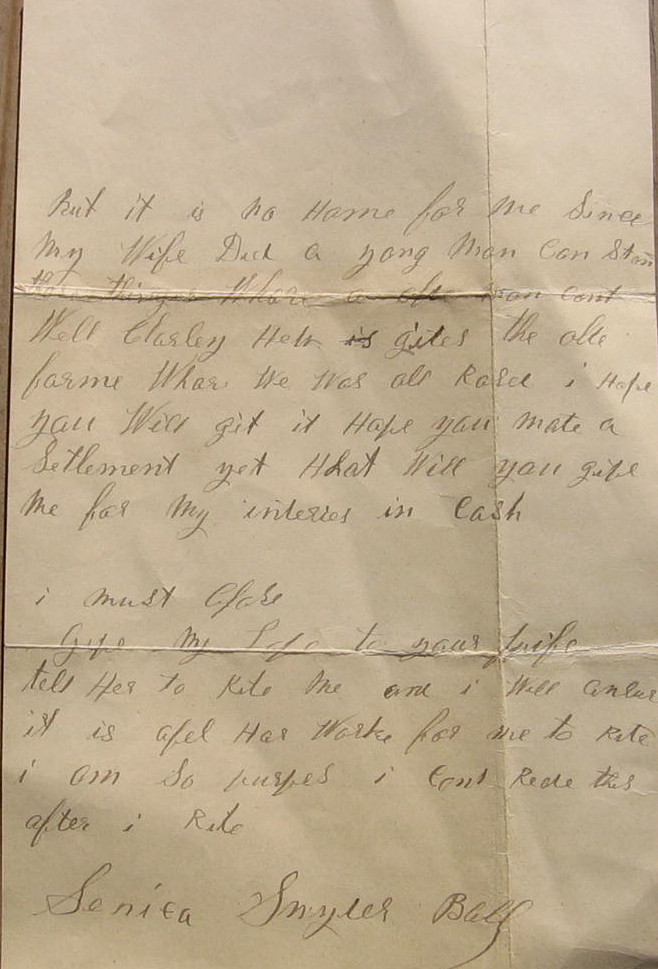 But it is no Home for me Since
My Wife Died a yong Man Can Stan
these things Whare a olte man cant
Well Charley How is gites the olte
farme Whare We Was all Rased i Hope
you Will git it Hope you mate a
Setlement yet What Will you gife
me for My interies in Cash
i must Close
Gife My Lofe to your Wife
tell Her to Rite Me and i Will anser
it is afel Har Worke for me to Rite
i am So
i Cant Rede this
after i Rite
Senica Snyter Ball